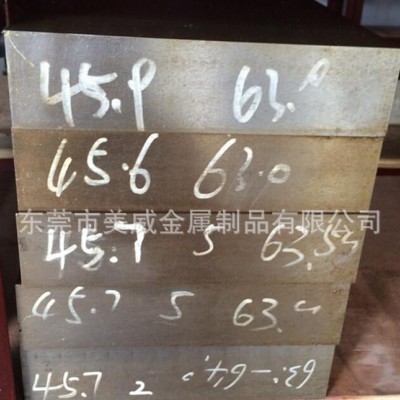 45.9 63.0
45.6 63.0
东莞市美威金属制品有限公司
45.7 5 63.53
45.7 5 63.
45.7 2